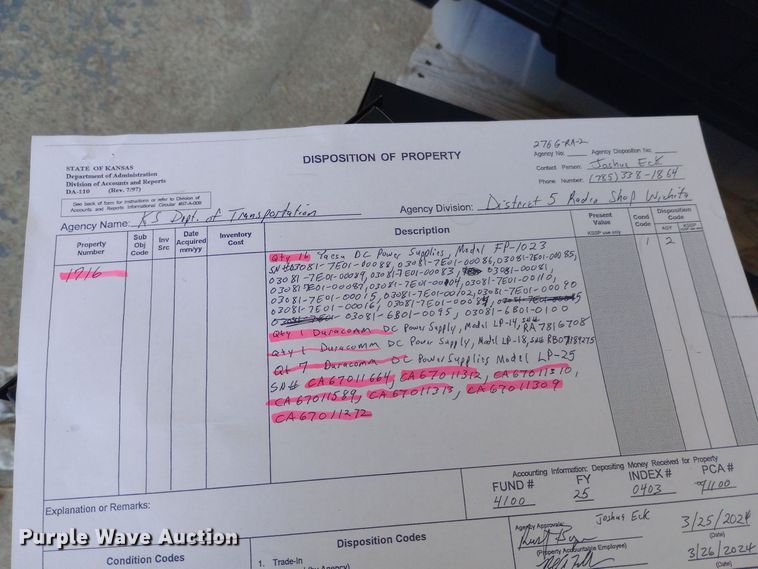 DISPOSITION OF PROPERTY
STATE OF KANSAS
Department of Administration
Division of Accounts and Reports
DA-110 (Rev. 7/97)
See back of form for instructions or refer to Division of
Accounts and Reports Informational Circular
276G-RA-2
Agency No: Agency Disposition No:
Contact Person: Joshua Eck
Phone Number: (785) 338-1864
Agency Name: KS Dept. of Transportation
Agency Division: District 5 Radio Shop Wichita
Property Number
Sub Obj Code
Inv Src
Date Acquired mm/yy
Inventory Cost
Description
Present Value
KSSP use only
Cond Code
Disposition Code
AGY
1716
1 2
Qty 16 Yaesu DC Power Supplies, Model FP-1023
SN# 03081-7E01-00088, 03081-7E01-00086, 03081-7E01-00085,
03081-7E01-00089, 03081-7E01-00083, 03081-00081,
03081-7E01-00087, 03081-7E01-00104, 03081-7E01-00110,
03081-7E01-00015, 03081-7E01-00102, 03081-7E01-00090
03081-7E01-00016,
03081-6B01-0095, 03081-6B01-0100
Qty 1 Duracomm DC Power Supply, Model LP-14, SN# RA7816708
Qty 1 Duracomm DC Power Supply, Model LP-18, SN# RB07189275
Qt 7 Duracomm DC Power Supplies Model LP-25
SN# CA67011664, CA67011312, CA67011310,
CA67011589, CA67011313, CA67011309
CA67011272
Accounting Information: Depositing Money Received for Property
FUND # FY INDEX # PCA #
4100 25 0403 91100
Explanation or Remarks:
Agency Approvals:
Joshua Eck 3/25/2024
(Property Accountable Employee) (Date)
3/26/2024
(Date)
Condition Codes
Disposition Codes
1. Trade-In
Purple Wave Auction